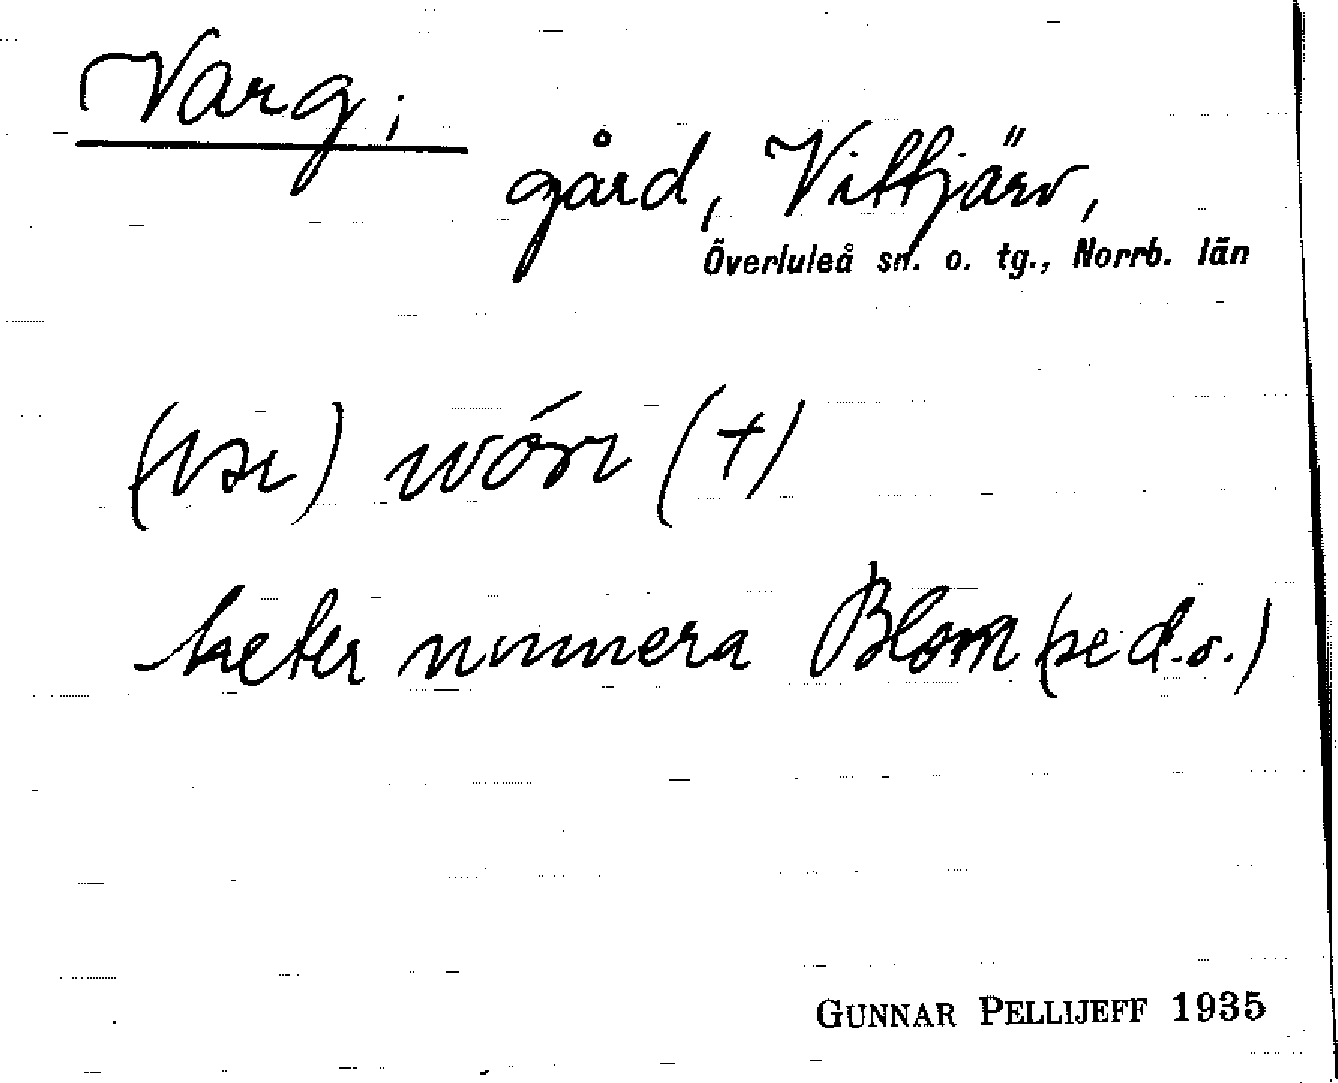 Varg,
gård, Vittjärv,
Överluleå sn. o. tg., Norrb. län
(+)
heter numera Blom (se d.o.)
GUNNAR PELLIJEFF 1935